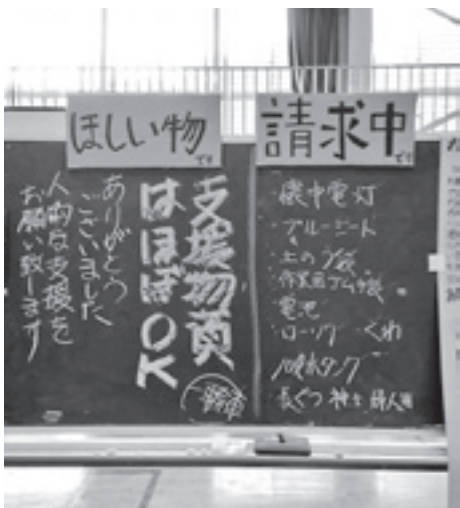 ほしい物
です
請求中
です
支援物資
はほぼOK
ありがとう
ございました
人的な支援を
お願い致します
懐中電灯
ブルーシート
土のう袋
作業用ゴム手袋
電池
ローソク くわ
吸水タンク
長ぐつ 紳士 婦人用